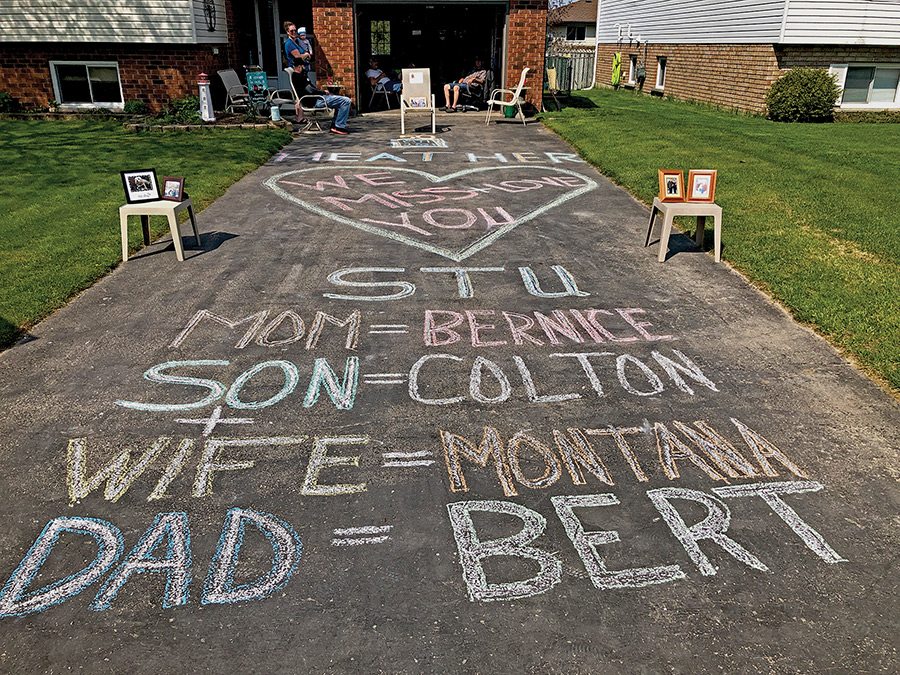 HEATHER
WE
MISS + LOVE
YOU
STU
MOM = BERNICE
SON = COLTON
+
WIFE = MONTANA
DAD = BERT